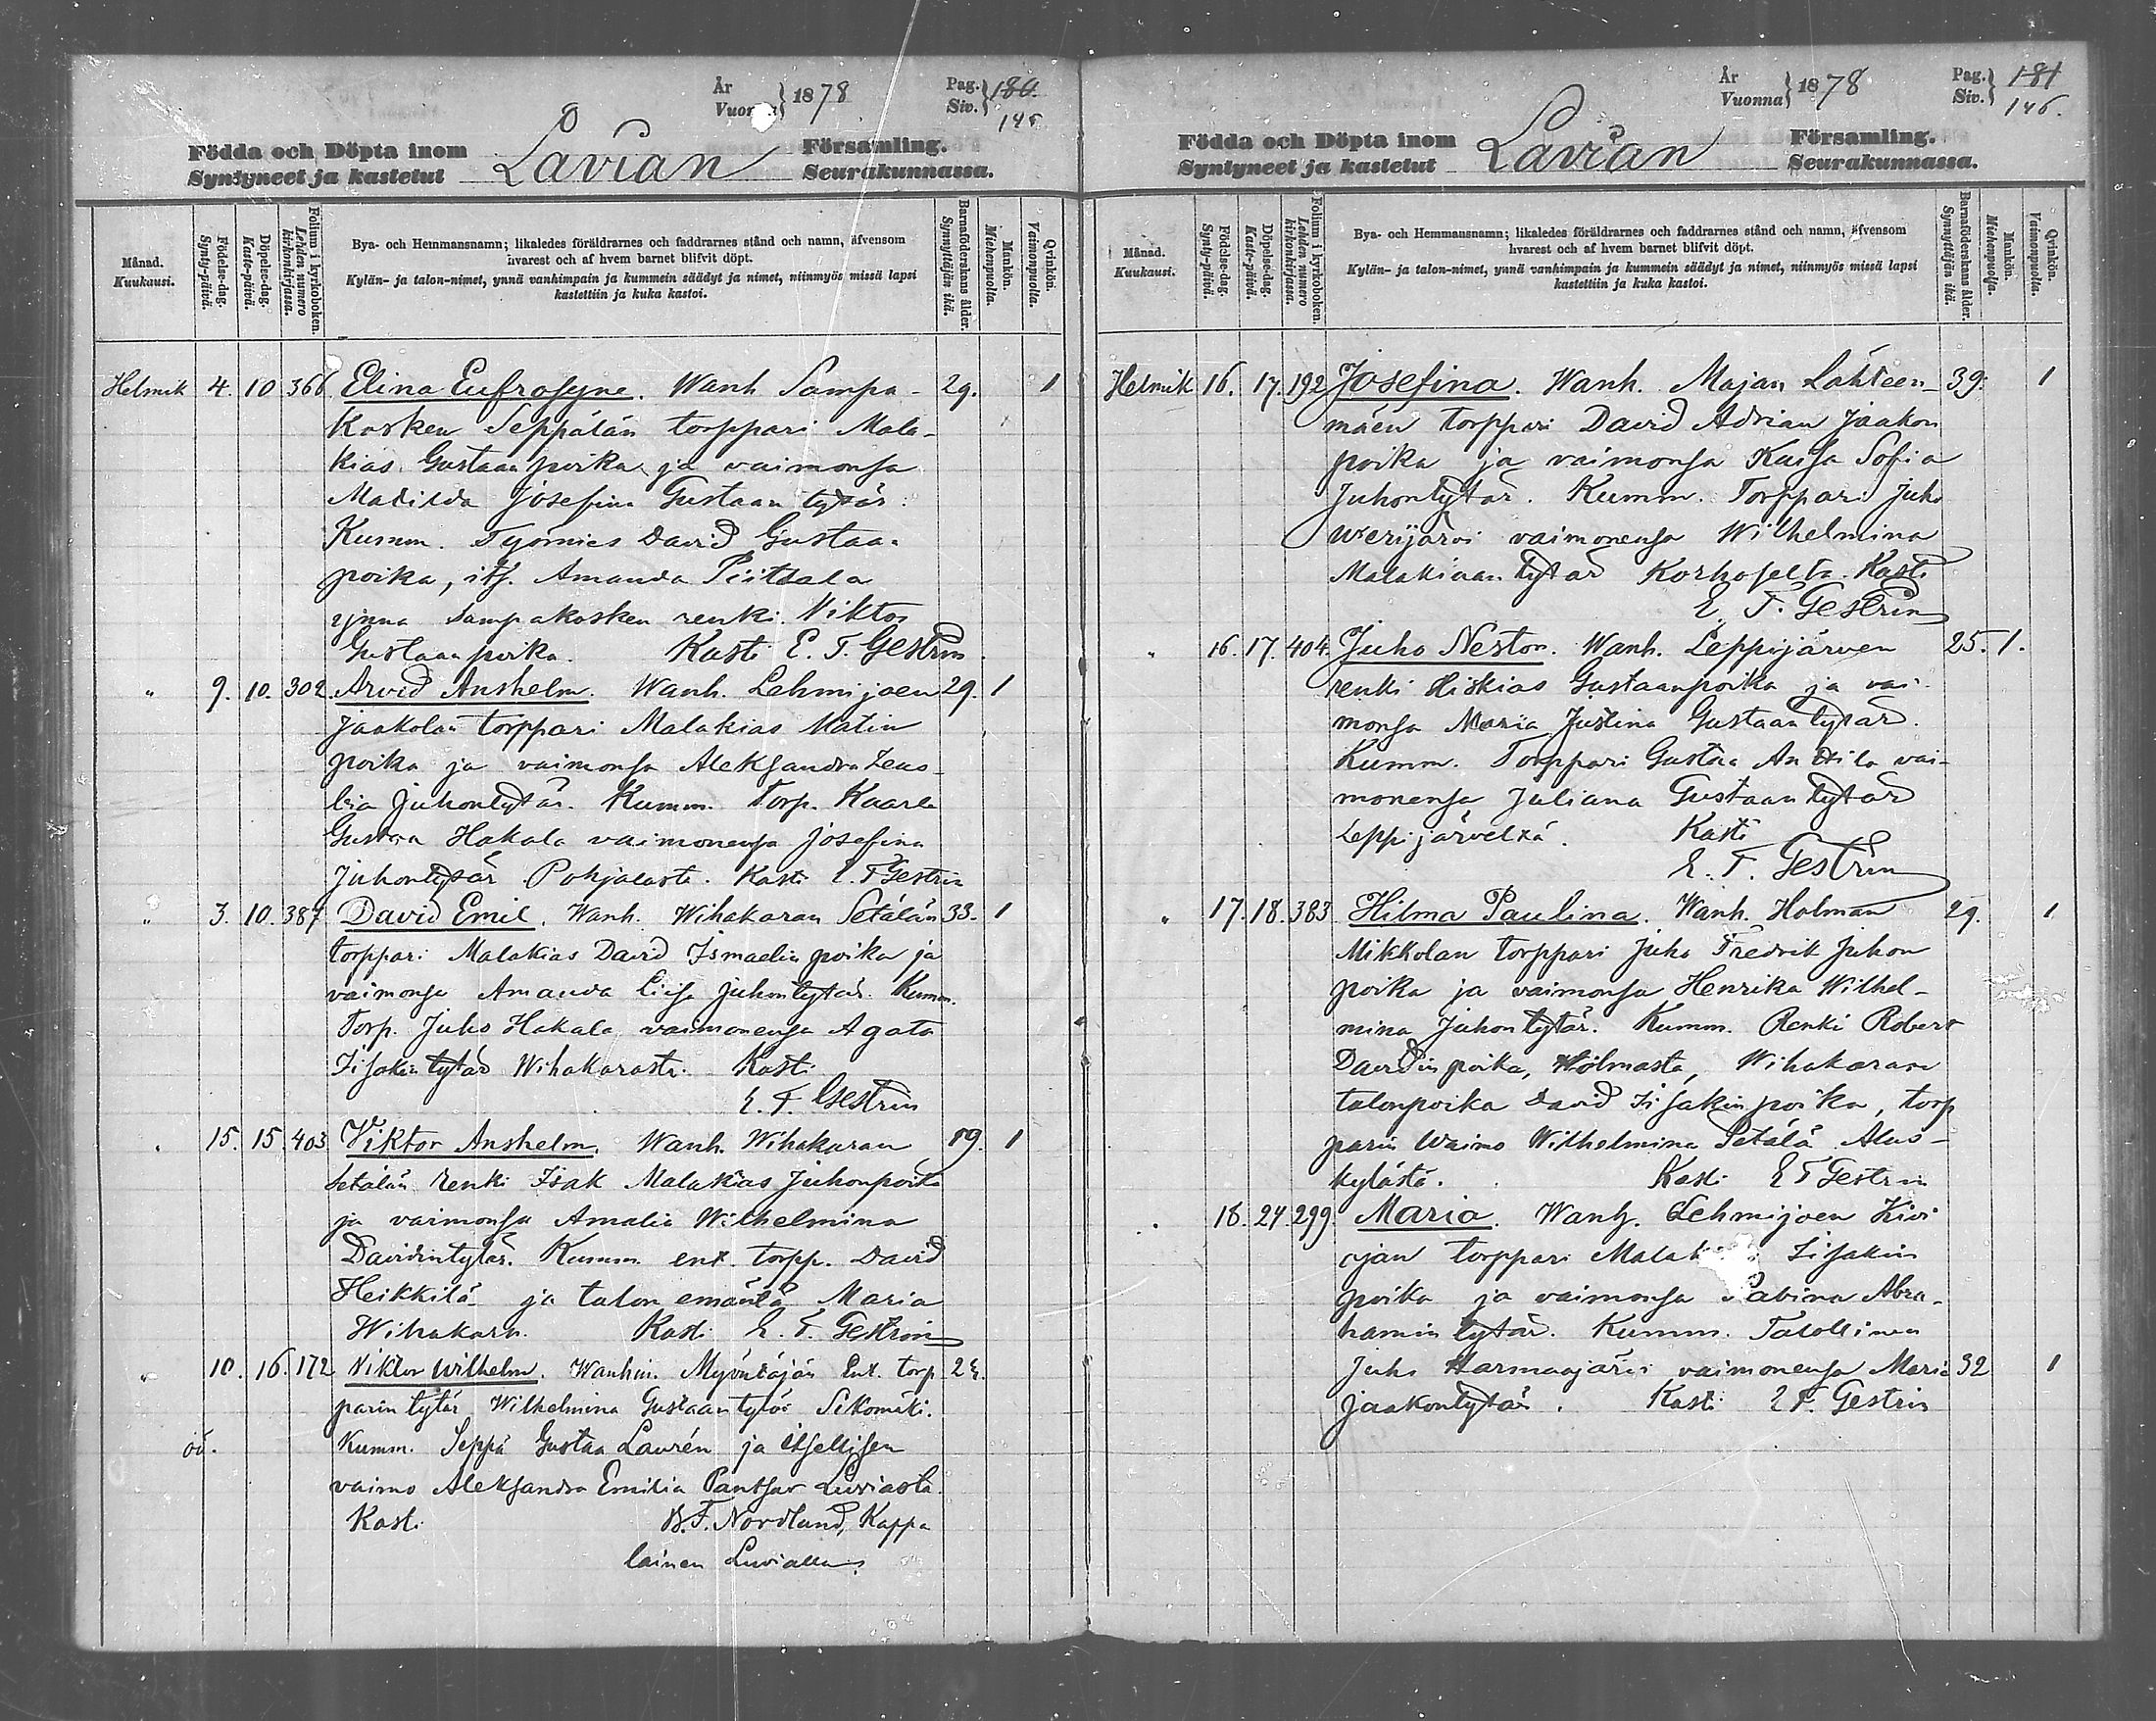 År
Vuonna } 1878
Pag.
Siv. } 180.
145
Födda och Döpta inom Lavian Församling.
Syntyneet ja kastetut Seurakunnassa.
Månad.
Kuukausi.
Födelse-dag.
Synty-päivä.
Döpelse-dag.
Kaste-päivä.
Folium i kyrkoboken.
Lehden numero kirkonkirjassa.
Bya- och Hemmansnamn; likaledes föräldrarnes och faddrarnes stånd och namn, äfvensom
hvarest och af hvem barnet blifvit döpt.
Kylän- ja talon-nimet, ynnä vanhimpain ja kummein säädyt ja nimet, niinmyös missä lapsi
kastettiin ja kuka kastoi.
Barnaföderskans ålder.
Synnyttäjän ikä.
Mankön.
Miehenpuolta.
Qvinkön.
Vaimonpuolta.
Helmik 4. 10 366 Elina Eufrosyne. Wanh Sampa- 29. 1
kosken Seppälän torppari Mala-
kias Gustaanpoika ja vaimonsa
Matilda Josefina Gustaan tytär.
Kumm. Työmies David Gustaa-
poika, its. Amanda
ynnä Sampakosken renki Viktor
Gustaanpoika. Kasti E. F. Gestrin
" 9. 10. 302. Arvid Anshelm. Wanh. Lehmijoen 29. 1
Jaakolan torppari Malakias Matin
poika ja vaimonsa Aleksandra
Juhontytär. Kumm. Torp. Kaarle
Gustaa Hakala vaimonensa Josefina
Juhontytär Pohjalasta. Kasti E. F Gestrin
" 3. 10. 387 David Emil. Wanh. Wihakaran Setälän 33. 1
torppari Malakias David Ismaelin poika ja
vaimonsa Amanda Liisa Juhontytär. Kumm.
Torp. Juho Hakala vaimonensa Agata
Iisakin tytär Wihakarasta. Kasti
E. F. Gestrin
" 15. 15. 403 Viktor Anshelm. Wanh. Wihakaran 19. 1
Setälän renki Isak Malakias Juhonpoika
ja vaimonsa Amalia Wilhelmina
Davidintytär. Kumm. ent. torpp. David
Heikkilä ja talon emäntä Maria
Wihakara. Kasti E. F. Gestrin
" 10. 16. 172 Viktor Wilhelm. Wanhin. Myöntäjän Ent. torp
parin tytär Wilhelmina Gustaan tytär Sikomäki.
oä. Kumm. Seppä Gustaa Laurén ja itsellisen
vaimo Aleksandra Emilia Pantsar Luviasta.
Kasti B. F. Nordlund, Kappa
lainen Luvialla.
År
Vuonna } 1878
Pag.
Siv. } 181
146.
Födda och Döpta inom Lavian Församling.
Syntyneet ja kastetut Seurakunnassa.
Månad.
Kuukausi.
Födelse-dag.
Synty-päivä.
Döpelse-dag.
Kaste-päivä.
Folium i kyrkoboken.
Lehden numero kirkonkirjassa.
Bya- och Hemmansnamn; likaledes föräldrarnes och faddrarnes stånd och namn, äfvensom
hvarest och af hvem barnet blifvit döpt.
Kylän- ja talon-nimet, ynnä vanhimpain ja kummein säädyt ja nimet, niinmyös missä lapsi
kastettiin ja kuka kastoi.
Barnaföderskans ålder.
Synnyttäjän ikä.
Mankön.
Miehenpuolta.
Qvinkön.
Vaimonpuolta.
Helmik 16. 17. 192 Josefina. Wanh. Majan Lähteen- 39. 1
mäen torppari David Adrian Jaakon
poika ja vaimonsa Kaisa Sofia
Juhontytär. Kumm. Torppari Juho
Werijärvi vaimonensa Wilhelmina
Malakiaan tytär Korhoselta. Kasti
E. F. Gestrin
" 16. 17. 404. Juho Nestor. Wanh. Leppijärven 25. 1.
renki Hiskias Gustaanpoika ja vai-
monsa Maria Justina Gustaan tytär.
Kumm. Torppari Gustaa Anttila vai-
monensa Juliana Gustaan tytär
Leppijärveltä. Kasti
E. F. Gestrin
" 17. 18. 383 Hilma Paulina. Wanh. Holman 29. 1
Mikkolan torppari Juho Fredrik Juhon
poika ja vaimonsa Henrika Wilhel-
mina Juhontytär. Kumm. Renki Robert
Davidin poika, Holmasta, Wihakaran
talonpoika David Iisakin poika, torp
parin Waimo Wilhelmina Setälä Alus-
kylästä. Kasti E F Gestrin
" 18. 24. 299. Maria. Wanh. Lehmijoen Kivi
ojan torppari Iisakin
poika ja vaimonsa Sabina Abra-
hamin tytär. Kumm. Talollinen
Juho Harmaajärvi vaimonensa Maria 32 1
Jaakontytär. Kasti E F. Gestrin